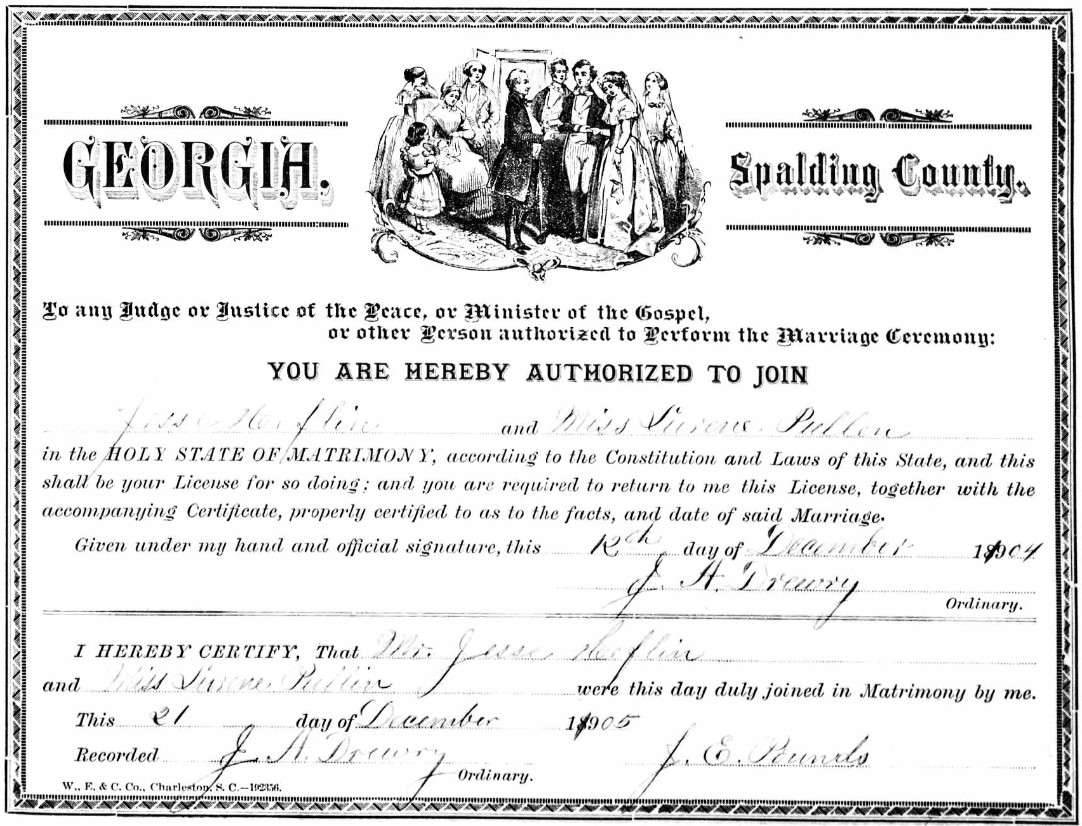 GEORGIA.
Spalding County.
To any Judge or Justice of the Peace, or Minister of the Gospel,
or other Person authorized to Perform the Marriage Ceremony:
YOU ARE HEREBY AUTHORIZED TO JOIN
Jesse Heflin and Miss Lurene Pullen
in the HOLY STATE OF MATRIMONY, according to the Constitution and Laws of this State, and this
shall be your License for so doing; and you are required to return to me this License, together with the
accompanying Certificate, properly certified to as to the facts, and date of said Marriage.
Given under my hand and official signature, this 12th day of December 1904
J. A. Drewry
Ordinary.
I HEREBY CERTIFY, That Mr. Jesse Heflin
and Miss Lurene Pullin were this day duly joined in Matrimony by me.
This 21 day of December 1905
Recorded J. A. Drewry Ordinary. J. E. Pounds
W., E. & C. Co., Charleston, S. C.—192356.